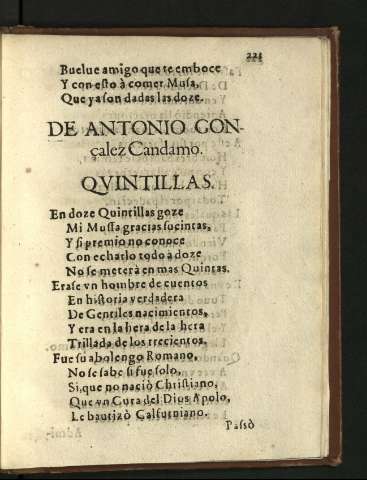 221
Buelue amigo que te emboce
Y con esto à comer Musa,
Que ya son dadas las doze.
DE ANTONIO GON-
çalez Candamo.
QVINTILLAS.
En doze Quintillas goze
Mi Mussa gracias sucintas,
Y si premio no conoce
Con echarlo todo à doze
No se meterà en mas Quintas.
Erase vn hombre de cuentos
En historia verdadera
De Gentiles nacimientos,
Y era en la hera de la hera
Trillada de los trecientos.
Fue su abolengo Romano,
No se sabe si fue solo,
Si, que no naciò Christiano,
Que vn Cura del Dios Apolo,
Le bautizò Galsurniano.
Passò